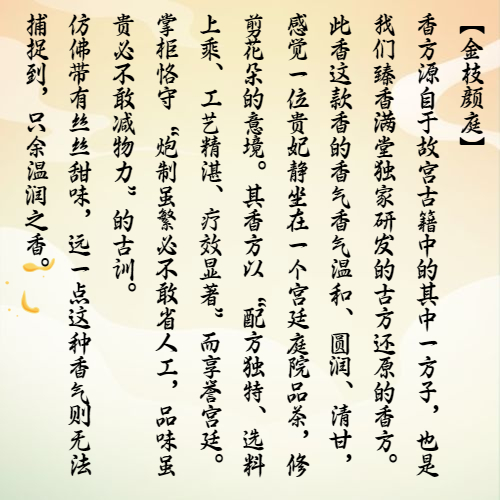 【金枝颜庭】
香方源自于故宫古籍中的其中一方子，也是
我们臻香满堂独家研发的古方还原的香方。
此香这款香的香气香气温和、圆润、清甘，
感觉一位贵妃静坐在一个宫廷庭院品茶，修
剪花朵的意境。其香方以“配方独特、选料
上乘、工艺精湛、疗效显著”而享誉宫廷。
掌柜恪守“炮制虽繁必不敢省人工，品味虽
贵必不敢减物力”的古训。
仿佛带有丝丝甜味，远一点这种香气则无法
捕捉到，只余温润之香。